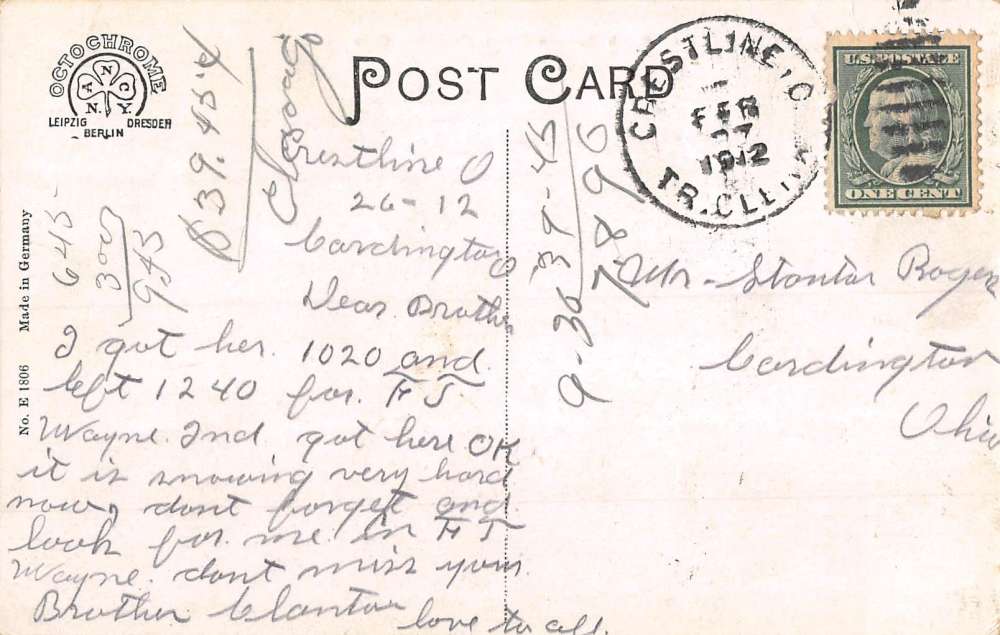 OCTOCHROME
A N C
N. Y.
LEIPZIG DRESDEN
BERLIN
POST CARD
CRESTLINE, O
FEB
27
1912
TR. CLK
U.S. POSTAGE
ONE CENT
No. E 1806 Made in Germany
$39.45
Chicago
645
300
945
9-36 39-45
7896
Crestline O
26-12
Cardington O
Dear Brother
I got her. 1020 and
left 1240 for. Ft
Wayne. Ind. got here OK
it is snowing very hard
now, dont forget and
look for. me. in Ft
Wayne. dont miss your
Brother Clanton
love to all.
Mr - Stantan Roger
Cardington
Ohio